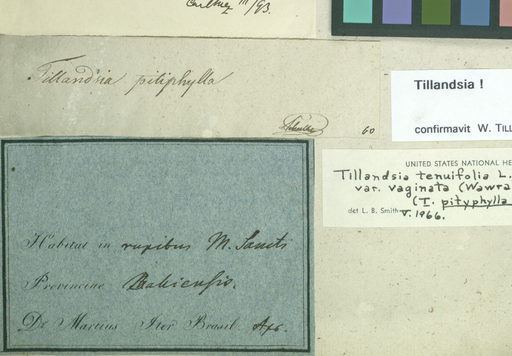 III/93.
Tillandsia pitiphylla
60
Tillandsia !
confirmavit W. TILL
UNITED STATES NATIONAL HE
Tillandsia tenuifolia L.
var. vaginata (Wawra
(T. pityphylla
det L. B. Smith V. 1966.
Habitat in rupibus M. Sancti
Provinciae Bahiensis.
Dr Martius Iter Brasil. Apr.